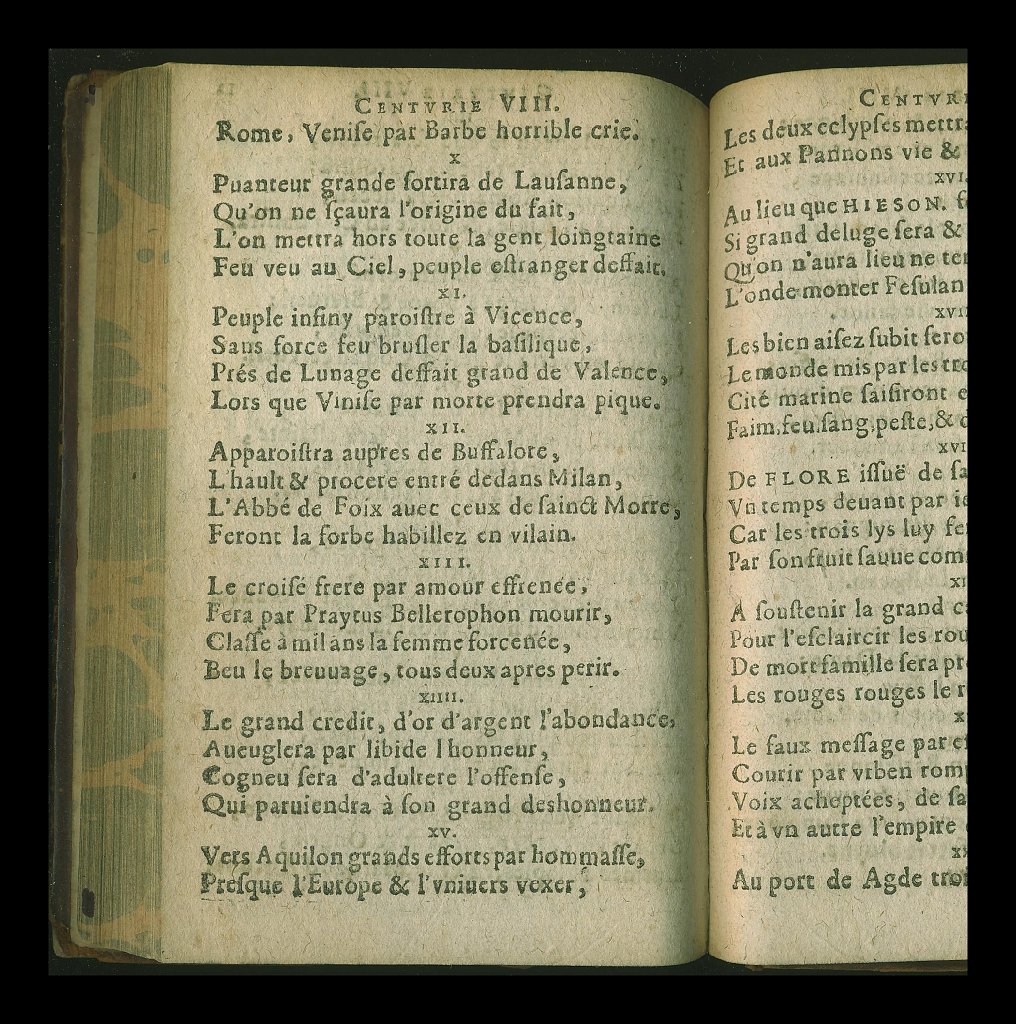 CENTVRIE VIII.
Rome, Veniſe par Barbe horrible crie.
X
Puanteur grande ſortira de Lauſanne,
Qu'on ne ſçaura l'origine du fait,
L'on mettra hors toute la gent loingtaine
Feu veu au Ciel, peuple eſtranger deffait.
XI.
Peuple infiny paroiſtre à Vicence,
Sans force feu bruſler la baſilique,
Prés de Lunage deffait grand de Valence,
Lors que Viniſe par morte prendra pique.
XII.
Apparoiſtra aupres de Buffalore,
L'hault & procere entré dedans Milan,
L'Abbé de Foix auec ceux de ſainct Morre,
Feront la forbe habillez en vilain.
XIII.
Le croiſé frere par amour effrenee,
Fera par Praytus Bellerophon mourir,
Claſſe à mil ans la femme forcenée,
Beu le breuuage, tous deux apres perir.
XIIII.
Le grand credit, d'or d'argent l'abondance,
Aueuglera par libide l honneur,
Cogneu ſera d'adultere l'offenſe,
Qui paruiendra à ſon grand deshonneur.
XV.
Vers Aquilon grands efforts par hommaſſe,
Preſque l'Europe & l'vniuers vexer,
CENTVRI
Les deux eclypſes mettra
Et aux Pannons vie &
XVI
Au lieu que HIESON. f
Si grand deluge ſera &
Qu'on n'aura lieu ne ter
L'onde monter Feſulan
XVII
Les bien aiſez ſubit ſero
Le monde mis par les tro
Cité marine ſaiſiront e
Faim, feu, ſang, peſte, & d
XVI
De FLORE iſſuë de ſa
Vn temps deuant par ie
Car les trois lys luy fe
Par ſon fruit ſauue com
XI
A ſouſtenir la grand c
Pour l'eſclaircir les rou
De mort famille ſera pr
Les rouges rouges le r
X
Le faux meſſage par e
Courir par vrben rom
Voix acheptées, de ſa
Et à vn autre l'empire
XX
Au port de Agde troi